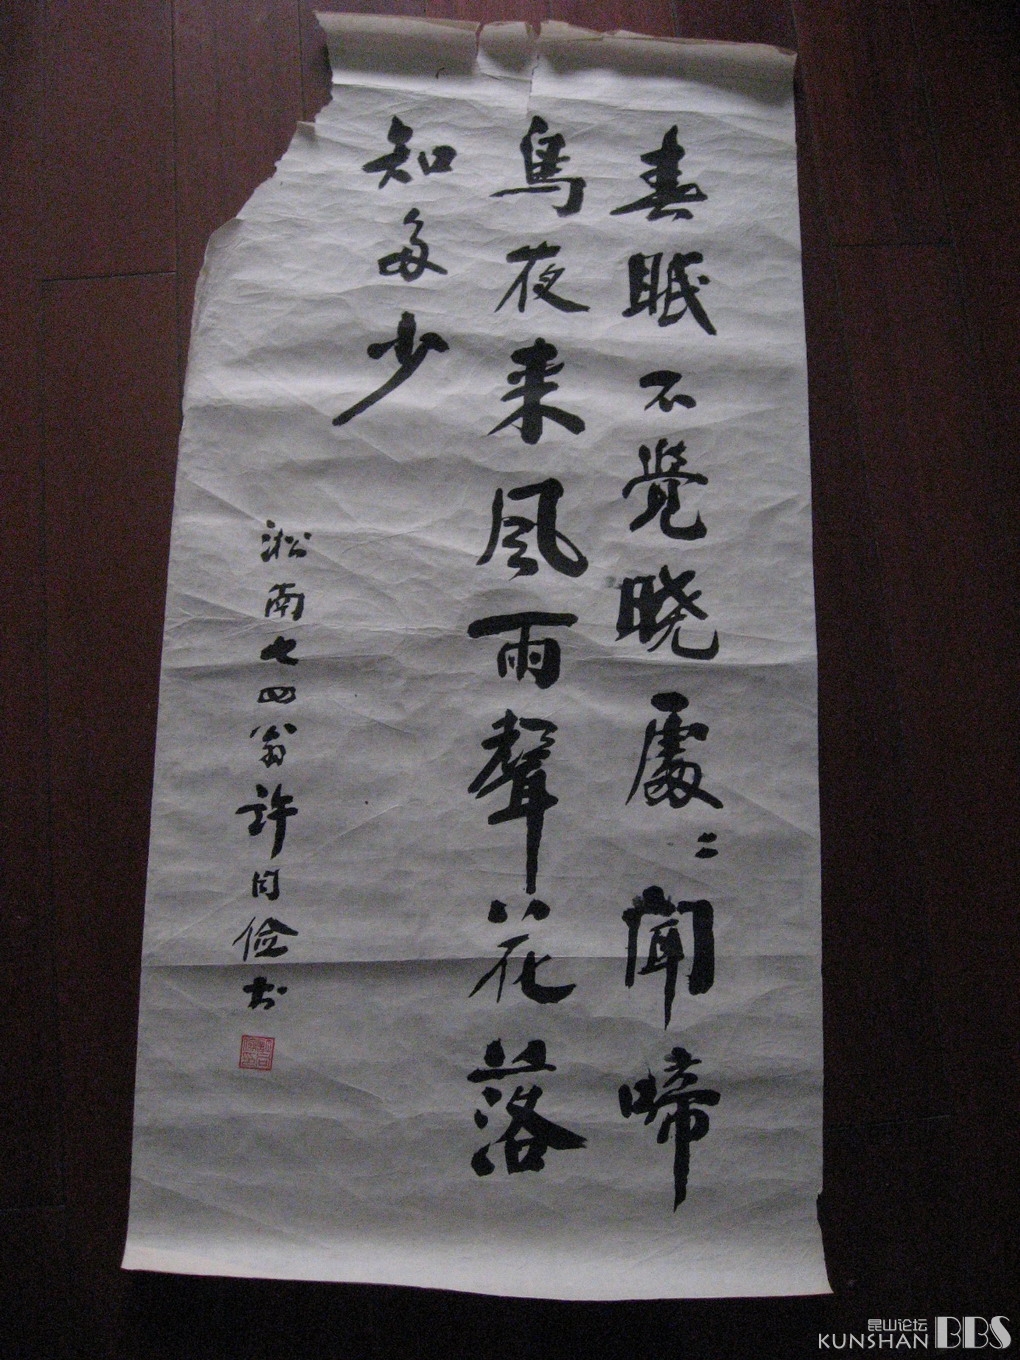 春眠不覺晓處〻聞啼
鳥夜来風雨聲花落
知多少
淞南七四翁許同儉书
昆山论坛
KUNSHAN BBS